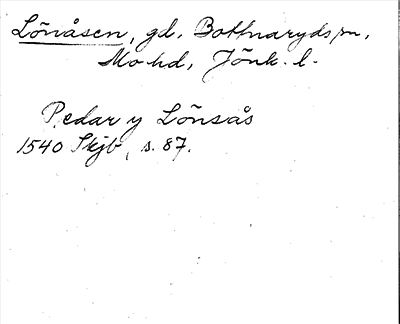 Lönåsen, gd, Bottnaryds sn,
Mo hd, Jönk. l.
Pedar y Lönsås
1540 Skjb, s. 87.